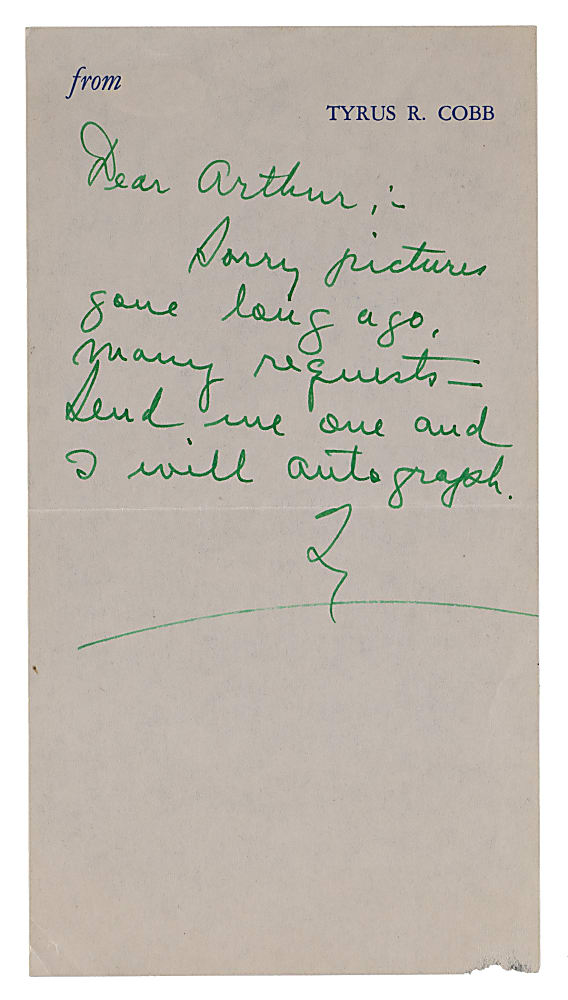 from
TYRUS R. COBB
Dear Arthur;-
Sorry pictures
gone long ago,
many requests—
Send me one and
I will autograph.
Ty